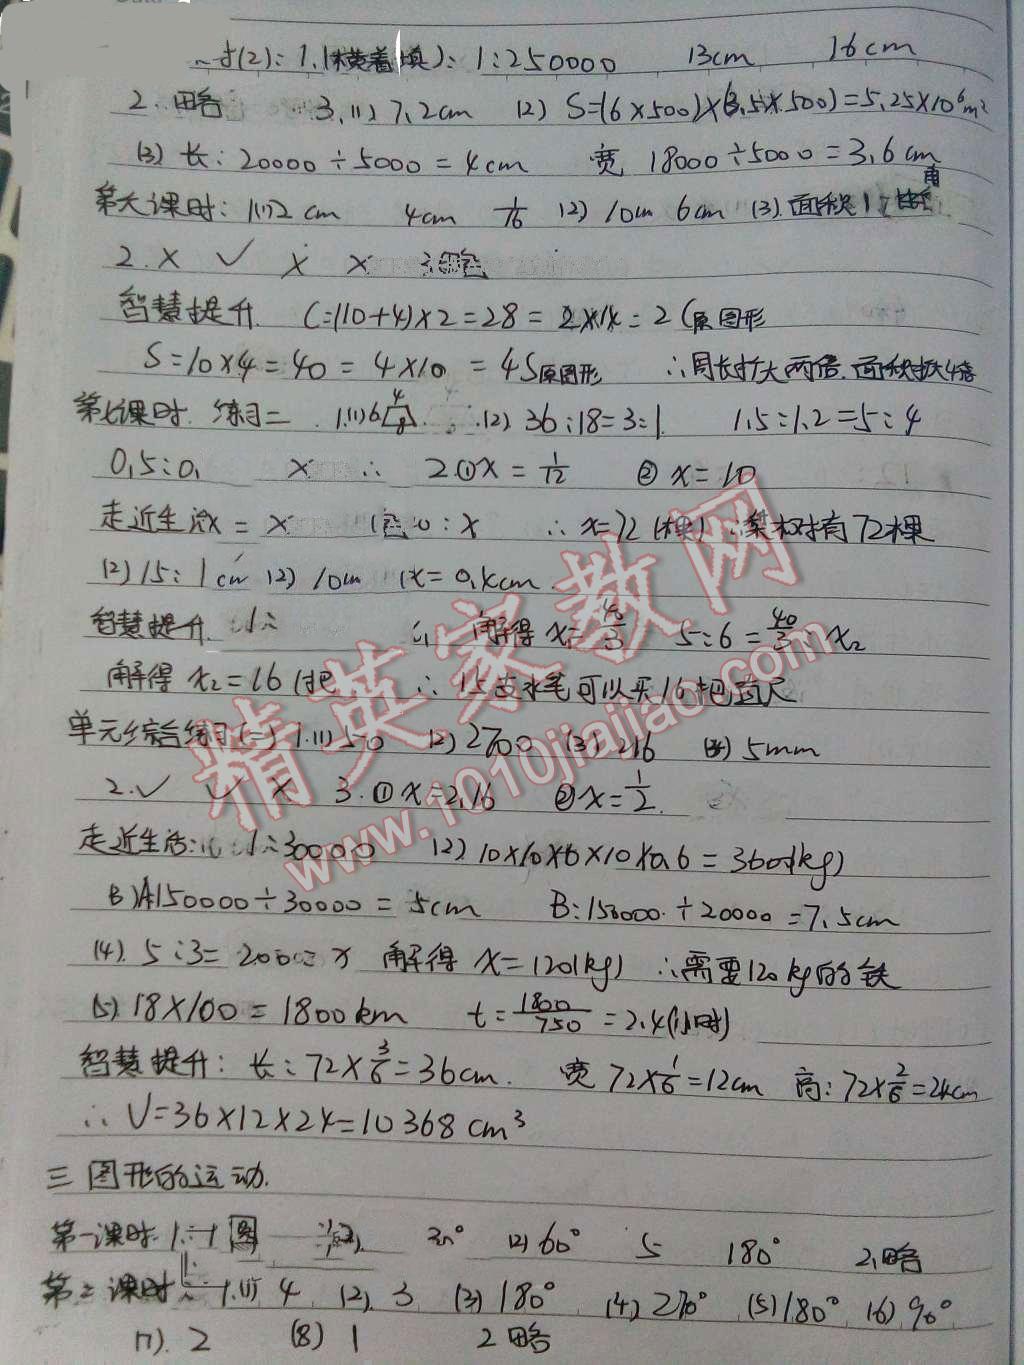 (2): 1.(横着填): 1:250000 13cm 16cm
2. 略 3.(1) 7.2cm (2) S=(6×500)×(3.5×500)=5.25×10⁶m²
(3) 长: 20000÷5000=4cm 宽 18000÷5000=3.6cm
第六课时: 1(1)2cm 4cm 1/16 (2) 10cm 6cm (3). 面积
2. × ✓ × × 3略
智慧提升. C=(10+4)×2=28=2×14=2C原图形
S=10×4=40=4×10=4S原图形 ∴周长扩大两倍.面积扩大4倍
第七课时. 练习二 1.(1) 6 4 8 (2) 36:18=3:1 1.5:1.2=5:4
0.5:0. × ∴ 2①x=1/12 ②x=10
走近生活x=x :x ∴x=72(棵) ∴梨树有72棵
(2) 15:1cm (2) 10cm x=0.4cm
智慧提升. 解得x=40/3 5:6=40/3:x₂
解得x₂=16(把 ∴15支水笔可以买16把直尺
单元综合练习(二) 1.(1) 50 (2) 2700 (3) 216 (4) 5mm
2.✓ ✓ × 3.①x=2.16 ②x=1/2.
走近生活: 1:30000 (2) 10×10×6×10×0.6=360(kg)
B)A150000÷30000=5cm B:150000÷20000=7.5cm
(4). 5:3=200:x 解得x=120(kg) ∴需要120kg的铁
(5) 18×100=1800km t=1800/750=2.4(小时)
智慧提升: 长:72×3/6=36cm. 宽72×1/6=12cm 高:72×2/6=24cm
∴V=36×12×24=10368cm³
三 图形的运动.
第一课时. 1. 图 30° (2) 60° 5 180° 2.略
第2课时: 1.(1) 4 (2). 3 (3) 180° (4) 270° (5) 180° (6) 90°
(7). 2 (8) 1 2略
精英家教网
www.1010jiajiao.com